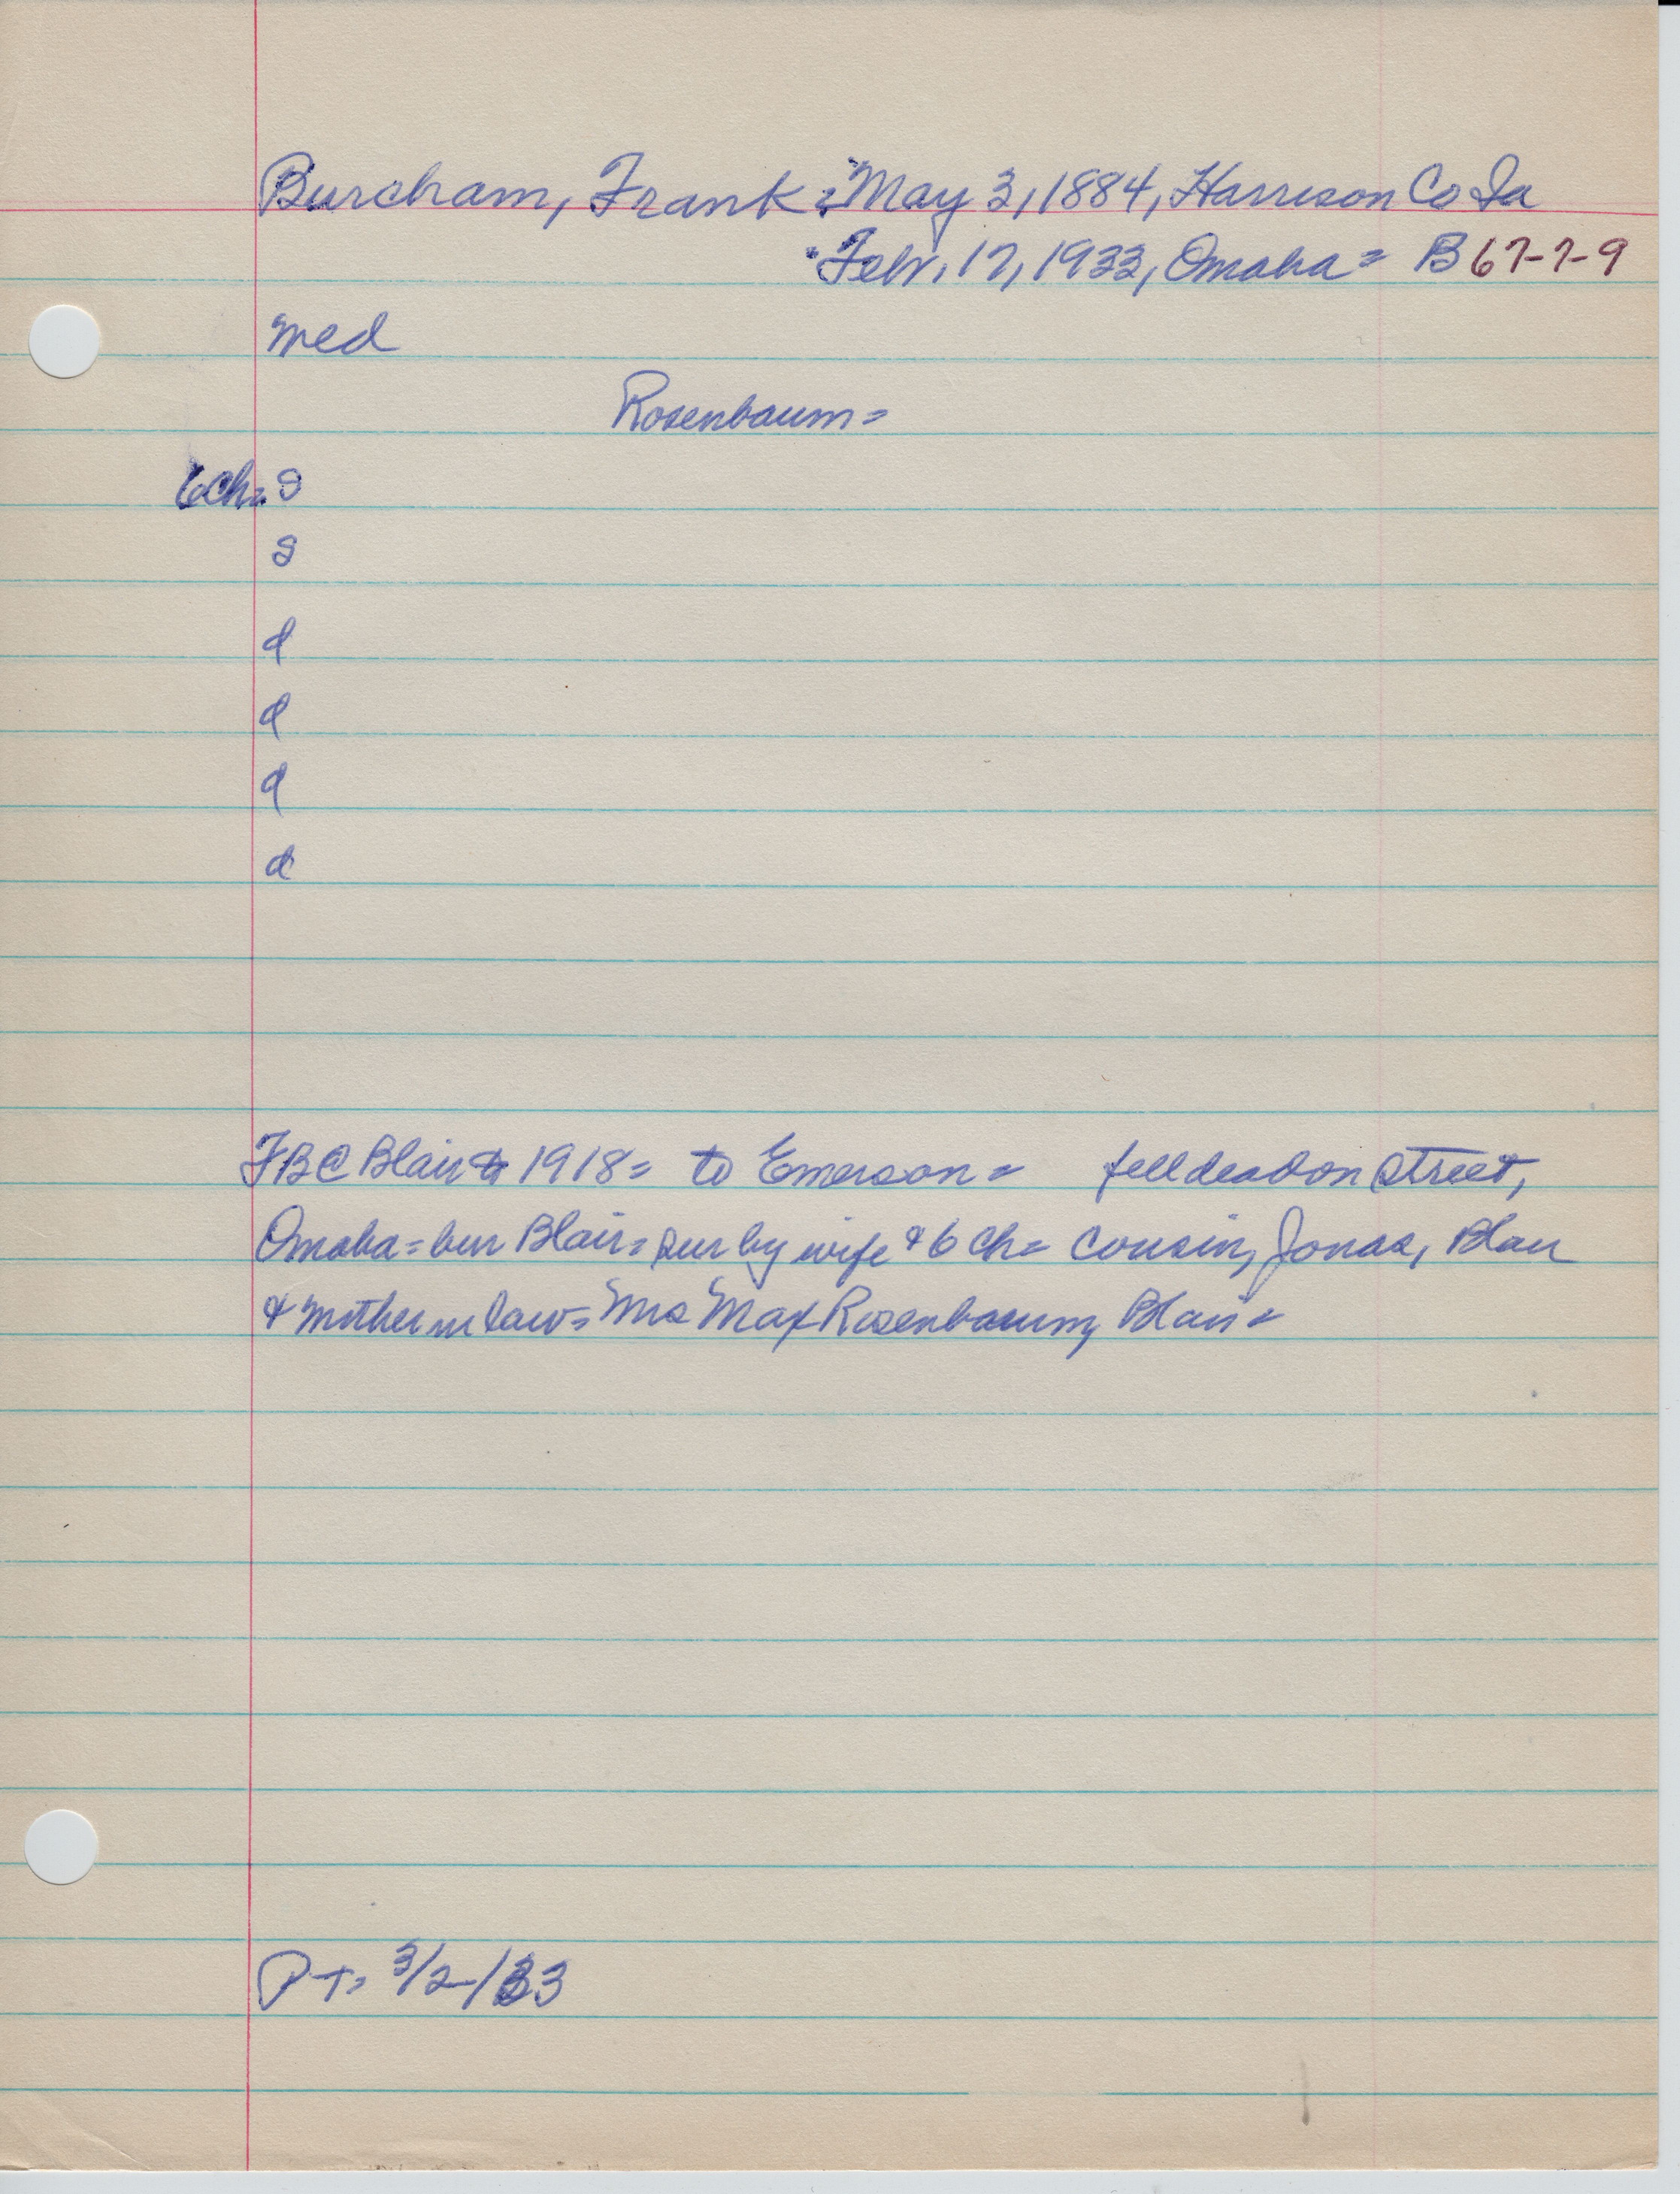 Burcham, Frank : May 3, 1884, Harrison Co Ia
Febr. 17, 1933, Omaha = B 67-7-9
med
Rosenbaum =
6 ch = s
s
d
d
d
d
FB @ Blair 1918 = to Emerson = fell dead on street,
Omaha = bur Blair = sur by wife & 6 ch = cousin, Jonas, Blair
& mother in law = Mrs Max Rosenbaum, Blair =
PT = 3/2/33